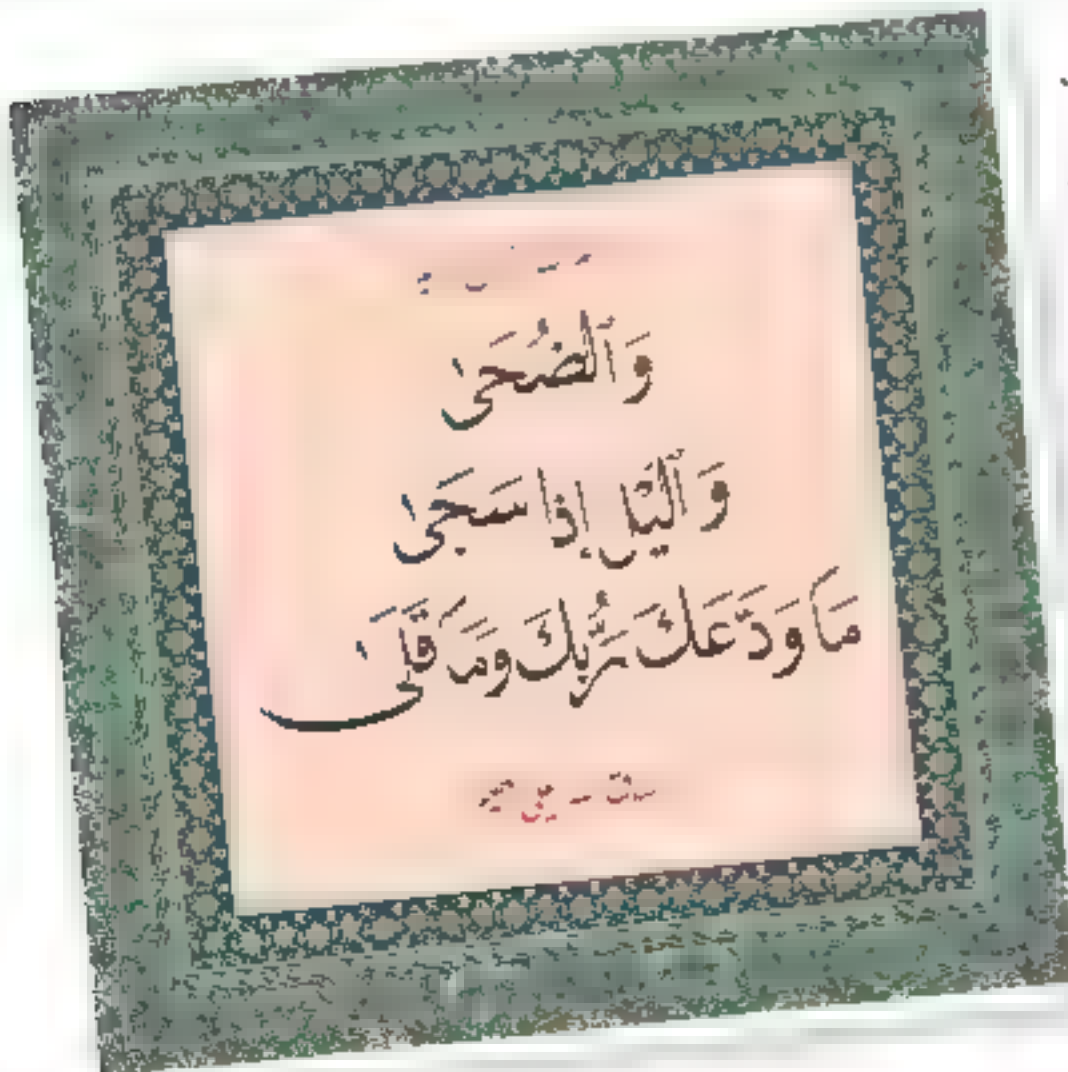 وَٱلضُّحَىٰ
وَٱلَّيْلِ إِذَا سَجَىٰ
مَا وَدَّعَكَ رَبُّكَ وَمَا قَلَىٰ